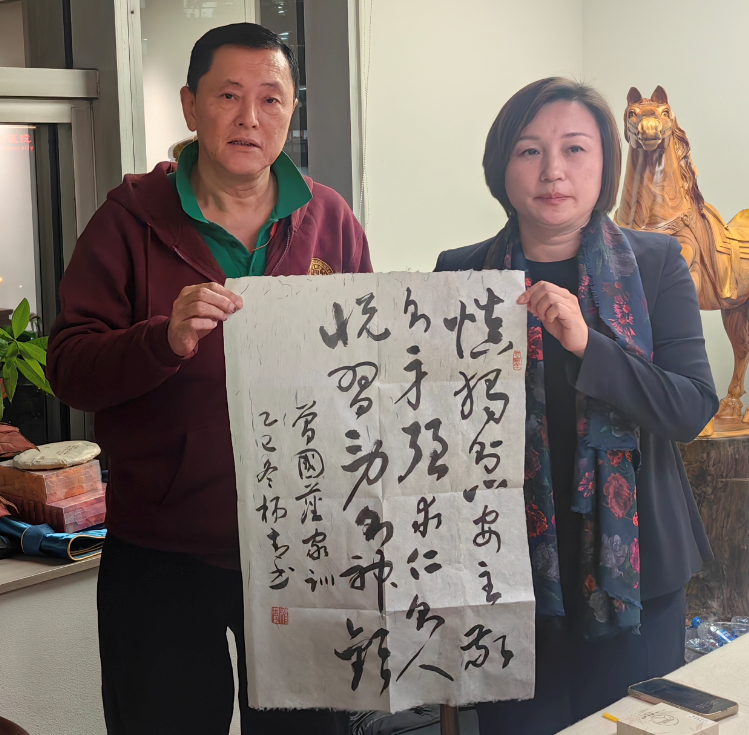 慎独则心安主敬
则身强求仁则人
悦习劳则神钦
曾國藩家训
乙巳冬柄书
院